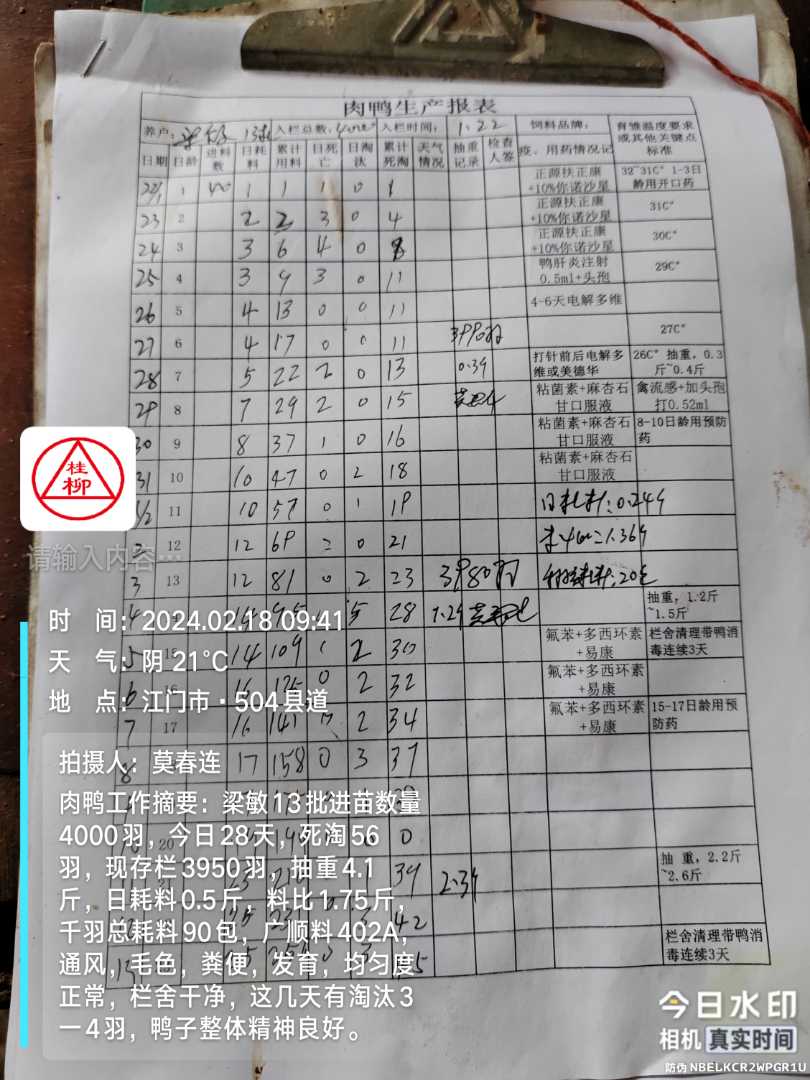 肉鸭生产报表
养户: 13批 入栏总数: 4000 入栏时间: 1.22 饲料品牌: 育雏温度要求或其他关键点标准
日期 日龄 进料数 日耗料 累计用料 日死亡 日淘汰 累计死淘 天气情况 抽重记录 检查人签 疫、用药情况记
22/1 1 40 1 1 1 0 1 正源扶正康+10%你诺沙星 32~31C° 1-3日龄用开口药
23 2 2 2 3 0 4 正源扶正康+10%你诺沙星 31C°
24 3 3 6 4 0 8 正源扶正康+10%你诺沙星 30C°
25 4 3 9 3 0 11 鸭肝炎注射0.5ml+头孢 29C°
26 5 4 13 0 0 11 4-6天电解多维
27 6 4 17 0 0 11 3990羽 27C°
28 7 5 22 2 0 13 0.39 打针前后电解多维或美德华 26C° 抽重,0.3斤~0.4斤
29 8 7 29 2 0 15 粘菌素+麻杏石甘口服液 禽流感+加头孢打0.52ml
30 9 8 37 1 0 16 粘菌素+麻杏石甘口服液 8-10日龄用预防药
31 10 10 47 0 2 18 粘菌素+麻杏石甘口服液
1/2 11 10 57 0 1 19 日耗料:0.249
2 12 12 69 2 0 21
3 13 12 81 0 2 23 3980羽
4 14 95 5 28 1.29 抽重,1.2斤~1.5斤
5 15 14 109 1 2 30 氟苯+多西环素+易康 栏舍清理带鸭消毒连续3天
6 16 16 125 0 2 32 氟苯+多西环素+易康
7 17 16 141 2 34 氟苯+多西环素+易康 15-17日龄用预防药
8 17 158 0 3 37
20 0
39 2.39 抽 重,2.2斤~2.6斤
3 42
13 栏舍清理带鸭消毒连续3天
桂柳
请输入内容
时 间:2024.02.18 09:41
天 气:阴 21℃
地 点:江门市·504县道
拍摄人:莫春连
肉鸭工作摘要:梁敏13批进苗数量
4000羽,今日28天,死淘56
羽,现存栏3950羽,抽重4.1
斤,日耗料0.5斤,料比1.75斤,
千羽总耗料90包,广顺料402A,
通风,毛色,粪便,发育,均匀度
正常,栏舍干净,这几天有淘汰3
一4羽,鸭子整体精神良好。
今日水印
相机 真实时间
防伪 NBELKCR2WPGR1U